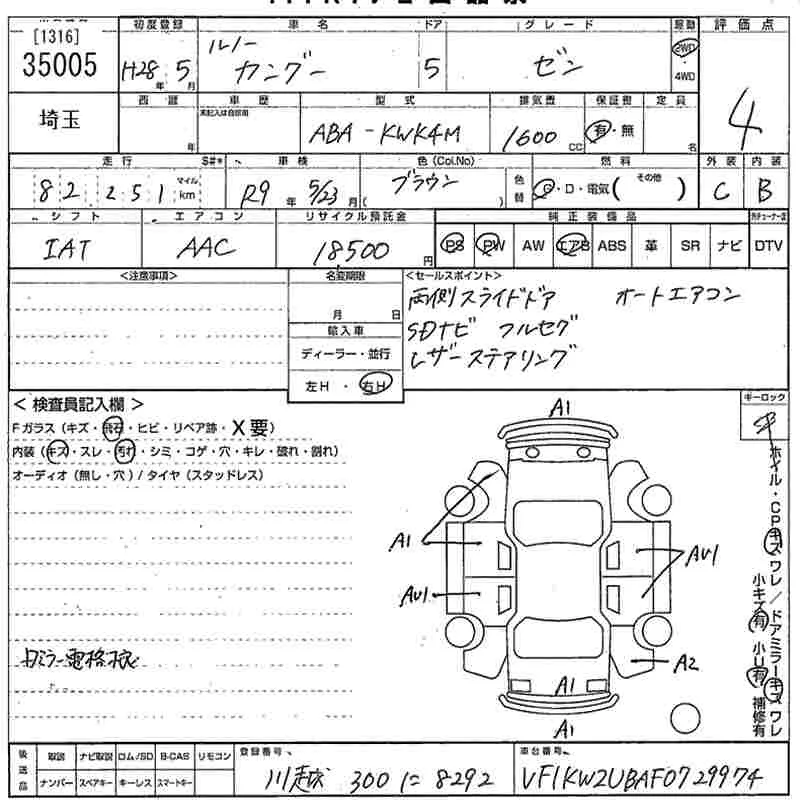 [1316]
35005
初度登録
H28年5月
車名
ルノー
カングー
ドア
5
グレード
ゼン
駆動
2WD
4WD
評価点
4
埼玉
西暦
年
車歴
未記入は自家用
型式
ABA-KWK4M
排気量
1600cc
保証書
有・無
定員
名
走行
S#*
82251
マイル
km
車検
R9年5/23月
色(Col.No)
ブラウン
( )
色替
燃料
G・D・電気( その他 )
外装
C
内装
B
シフト
IAT
エアコン
AAC
リサイクル預託金
18500円
純正装備品
PS PW AW エアB ABS 革 SR ナビ DTV
<注意事項>
名変期限
月 日
輸入車
ディーラー・並行
左H・右H
<セールスポイント>
両側スライドドア オートエアコン
SDナビ フルセグ
レザーステアリング
<検査員記入欄>
Fガラス(キズ・飛石・ヒビ・リペア跡・X要)
内装(キズ・スレ・汚れ・シミ・コゲ・穴・キレ・破れ・割れ)
オーディオ(無し・穴)/タイヤ(スタッドレス)
キーロック
A1
A1
AU1
AU1
A2
A1
A1
ホイル・CPキズワレ/ドアミラーキズワレ
小キズ有 小U有 補修有
後送品
取説 ナビ取説 ロム/SD B-CAS リモコン
ナンバー スペアキー キーレス スマートキー
登録番号
川越 300 に 8292
車台番号
VF1KW2UBAF0729974